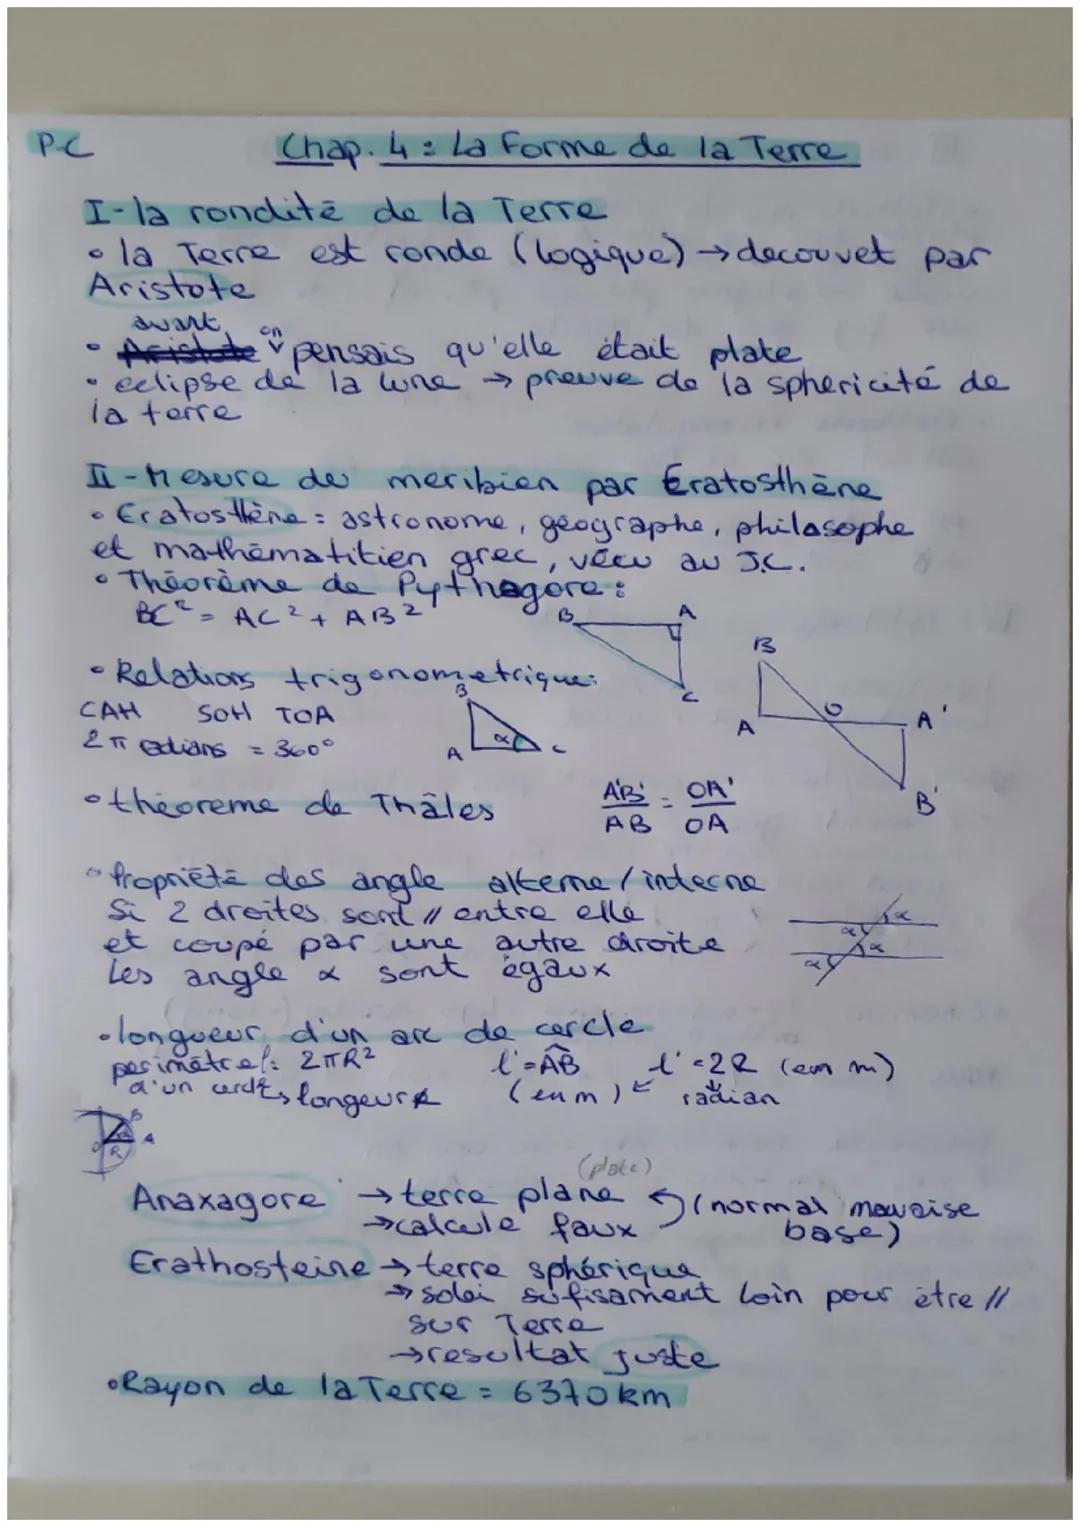 P-C
Chap. 4 : La Forme de la Terre
I-la rondité de la Terre
• la Terre est ronde (logique) → decouvet par
Aristote
avant
• Aristote on pensais qu'elle était plate
• eclipse de la lune → preuve de la sphericité de
la terre
II-Mesure de meribien par Ératosthène
• Eratosthène : astronome, géographe, philosophe
et mathématitien grec, vécu au J.C.
• Théorème de Pythagore :
BC² = AC² + AB²
B A
C
B
A O A'
B'
• Relations trigonometrique:
CAH SOH TOA
2π radians = 360°
B
A α C
• théoreme de Thâles
A'B' = OA'
AB OA
• Propriété des angle alterne/interne
Si 2 droites sont // entre elle
et coupé par une autre droite
Les angle α sont égaux
α
α α
α
• longueur d'un arc de cercle
perimètre : 2πR²
d'un cercle, longeur
l' = AB
(en m)
l' = 2R (en m)
radian
B
A
R
(plate)
Anaxagore → terre plane (normal mauvaise
→ calcule faux base)
Erathosteine → terre sphérique
→ solei sufisament loin pour être //
sur Terre
→ resultat juste
• Rayon de la Terre = 6370 km